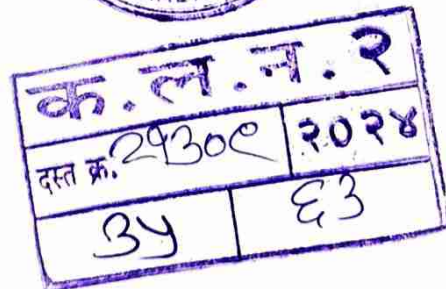 क.ल.न.२
दस्त क्र. २१३०९ २०२४
३५ ६३